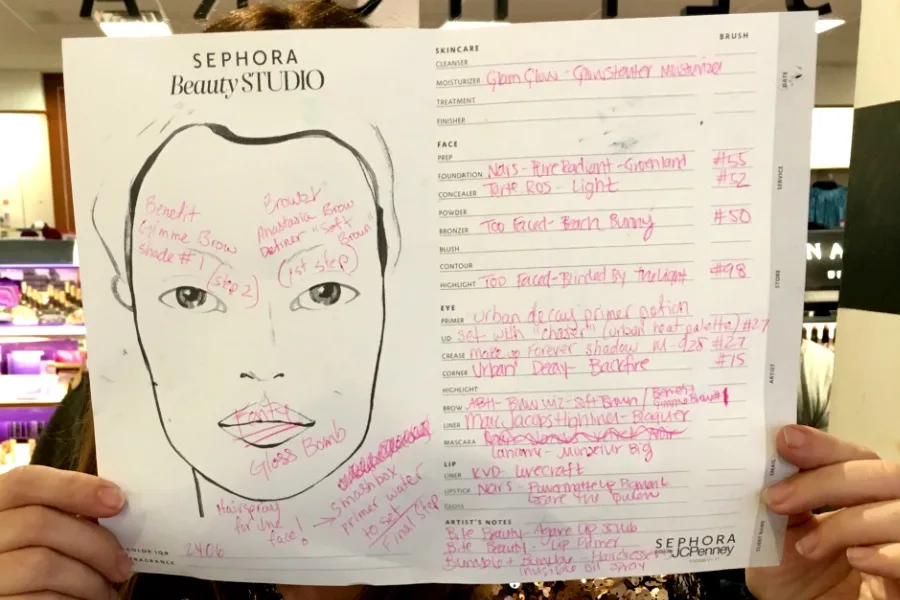 SEPHORA
Beauty STUDIO
Benefit
Gimme Brow
shade #1
(step 2)
Brows!
Anastasia Brow
Definer "Soft
Brown"
(1st step)
Fenty
Gloss Bomb
Hairspray
for the
face!
→ smashbox
primer water
to set
Final Step
COLOR IQ#
2Y06
FRAGRANCE
BRUSH
SKINCARE
CLEANSER
MOISTURIZER Glam Glow - Glowstarter Moisturizer
TREATMENT
FINISHER
FACE
PREP
FOUNDATION Nars - Pure Radiant - Groenland #55
CONCEALER Tarte Ros - Light #52
POWDER
BRONZER Too Faced - Beach Bunny #50
BLUSH
CONTOUR
HIGHLIGHT Too Faced - Blinded By the Light #98
EYE
PRIMER urban decay primer potion
LID set with "chaser" (urban heat palette) #27
CREASE make up forever shadow M-928 #27
CORNER Urban Decay - Backfire #15
HIGHLIGHT
BROW ABH - Brow Wiz - Soft Brown / Benefit Gimme Brow #1
LINER Marc Jacobs Highliner - Blaquer
MASCARA
Lancome - Monsieur Big
LIP
LINER KVD - Lovecraft
LIPSTICK Nars - Powermatte Lip Pigment
GLOSS
ARTIST'S NOTES
Bite Beauty - Agave Lip Scrub
Bite Beauty - Lip Primer
Bumble + Bumble - Hairdresser's
Invisible Oil Spray
SEPHORA
INSIDE JCPenney
DATE
SERVICE
STORE
ARTIST
EMAIL
CLIENT NAME